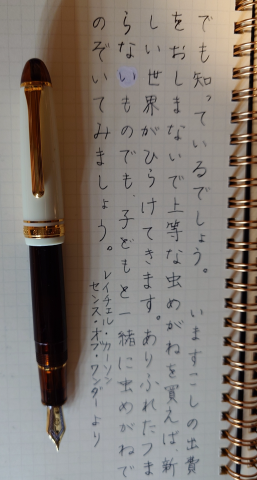 でも知っているでしょう。　いますこしの出費
をおしまないで上等な虫めがねを買えば、新
しい世界がひらけてきます。ありふれたつま
らないものでも、子どもと一緒に虫めがねで
のぞいてみましょう。
レイチェル・カーソン
センス・オブ・ワンダーより